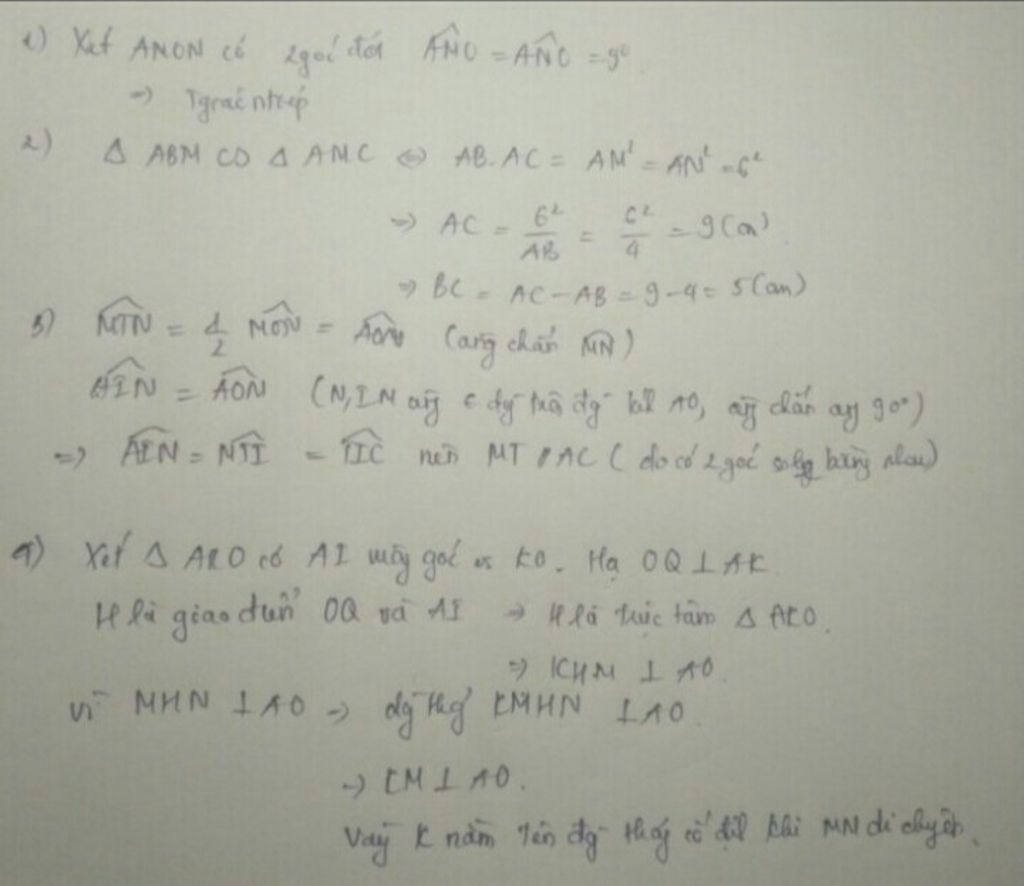 1) Xét AMON có 2 góc đối \widehat{AMO} = \widehat{ANO} = 90
=> Tgiác ntiếp
2) Δ ABM ∽ Δ AMC <=> AB.AC = AM² = AN² = 6²
=> AC = 6²/AB = 6²/4 = 9(cm)
=> BC = AC - AB = 9 - 4 = 5(cm)
3) \widehat{MTN} = 1/2 \widehat{MON} = \widehat{AON} (cùng chắn MN)
\widehat{AIN} = \widehat{AON} (N, I, M cùng € đg tròn đg kí AO, cùng chắn 90°)
=> \widehat{AIN} = \widehat{NTI} = \widehat{TIC} nên MT // AC (do có 2 góc solg bằng nhau)
4) Xét Δ AKO có AI vuông góc vs KO. Hạ OQ ⊥ AK
H là giao điểm OQ và AI => H là trực tâm Δ AKO.
=> KHM ⊥ AO.
vì MHN ⊥ AO -> đg thg KMHN ⊥ AO.
-> KM ⊥ AO.
Vậy K nằm trên đg thẳg cố địh khi MN di chuyển.